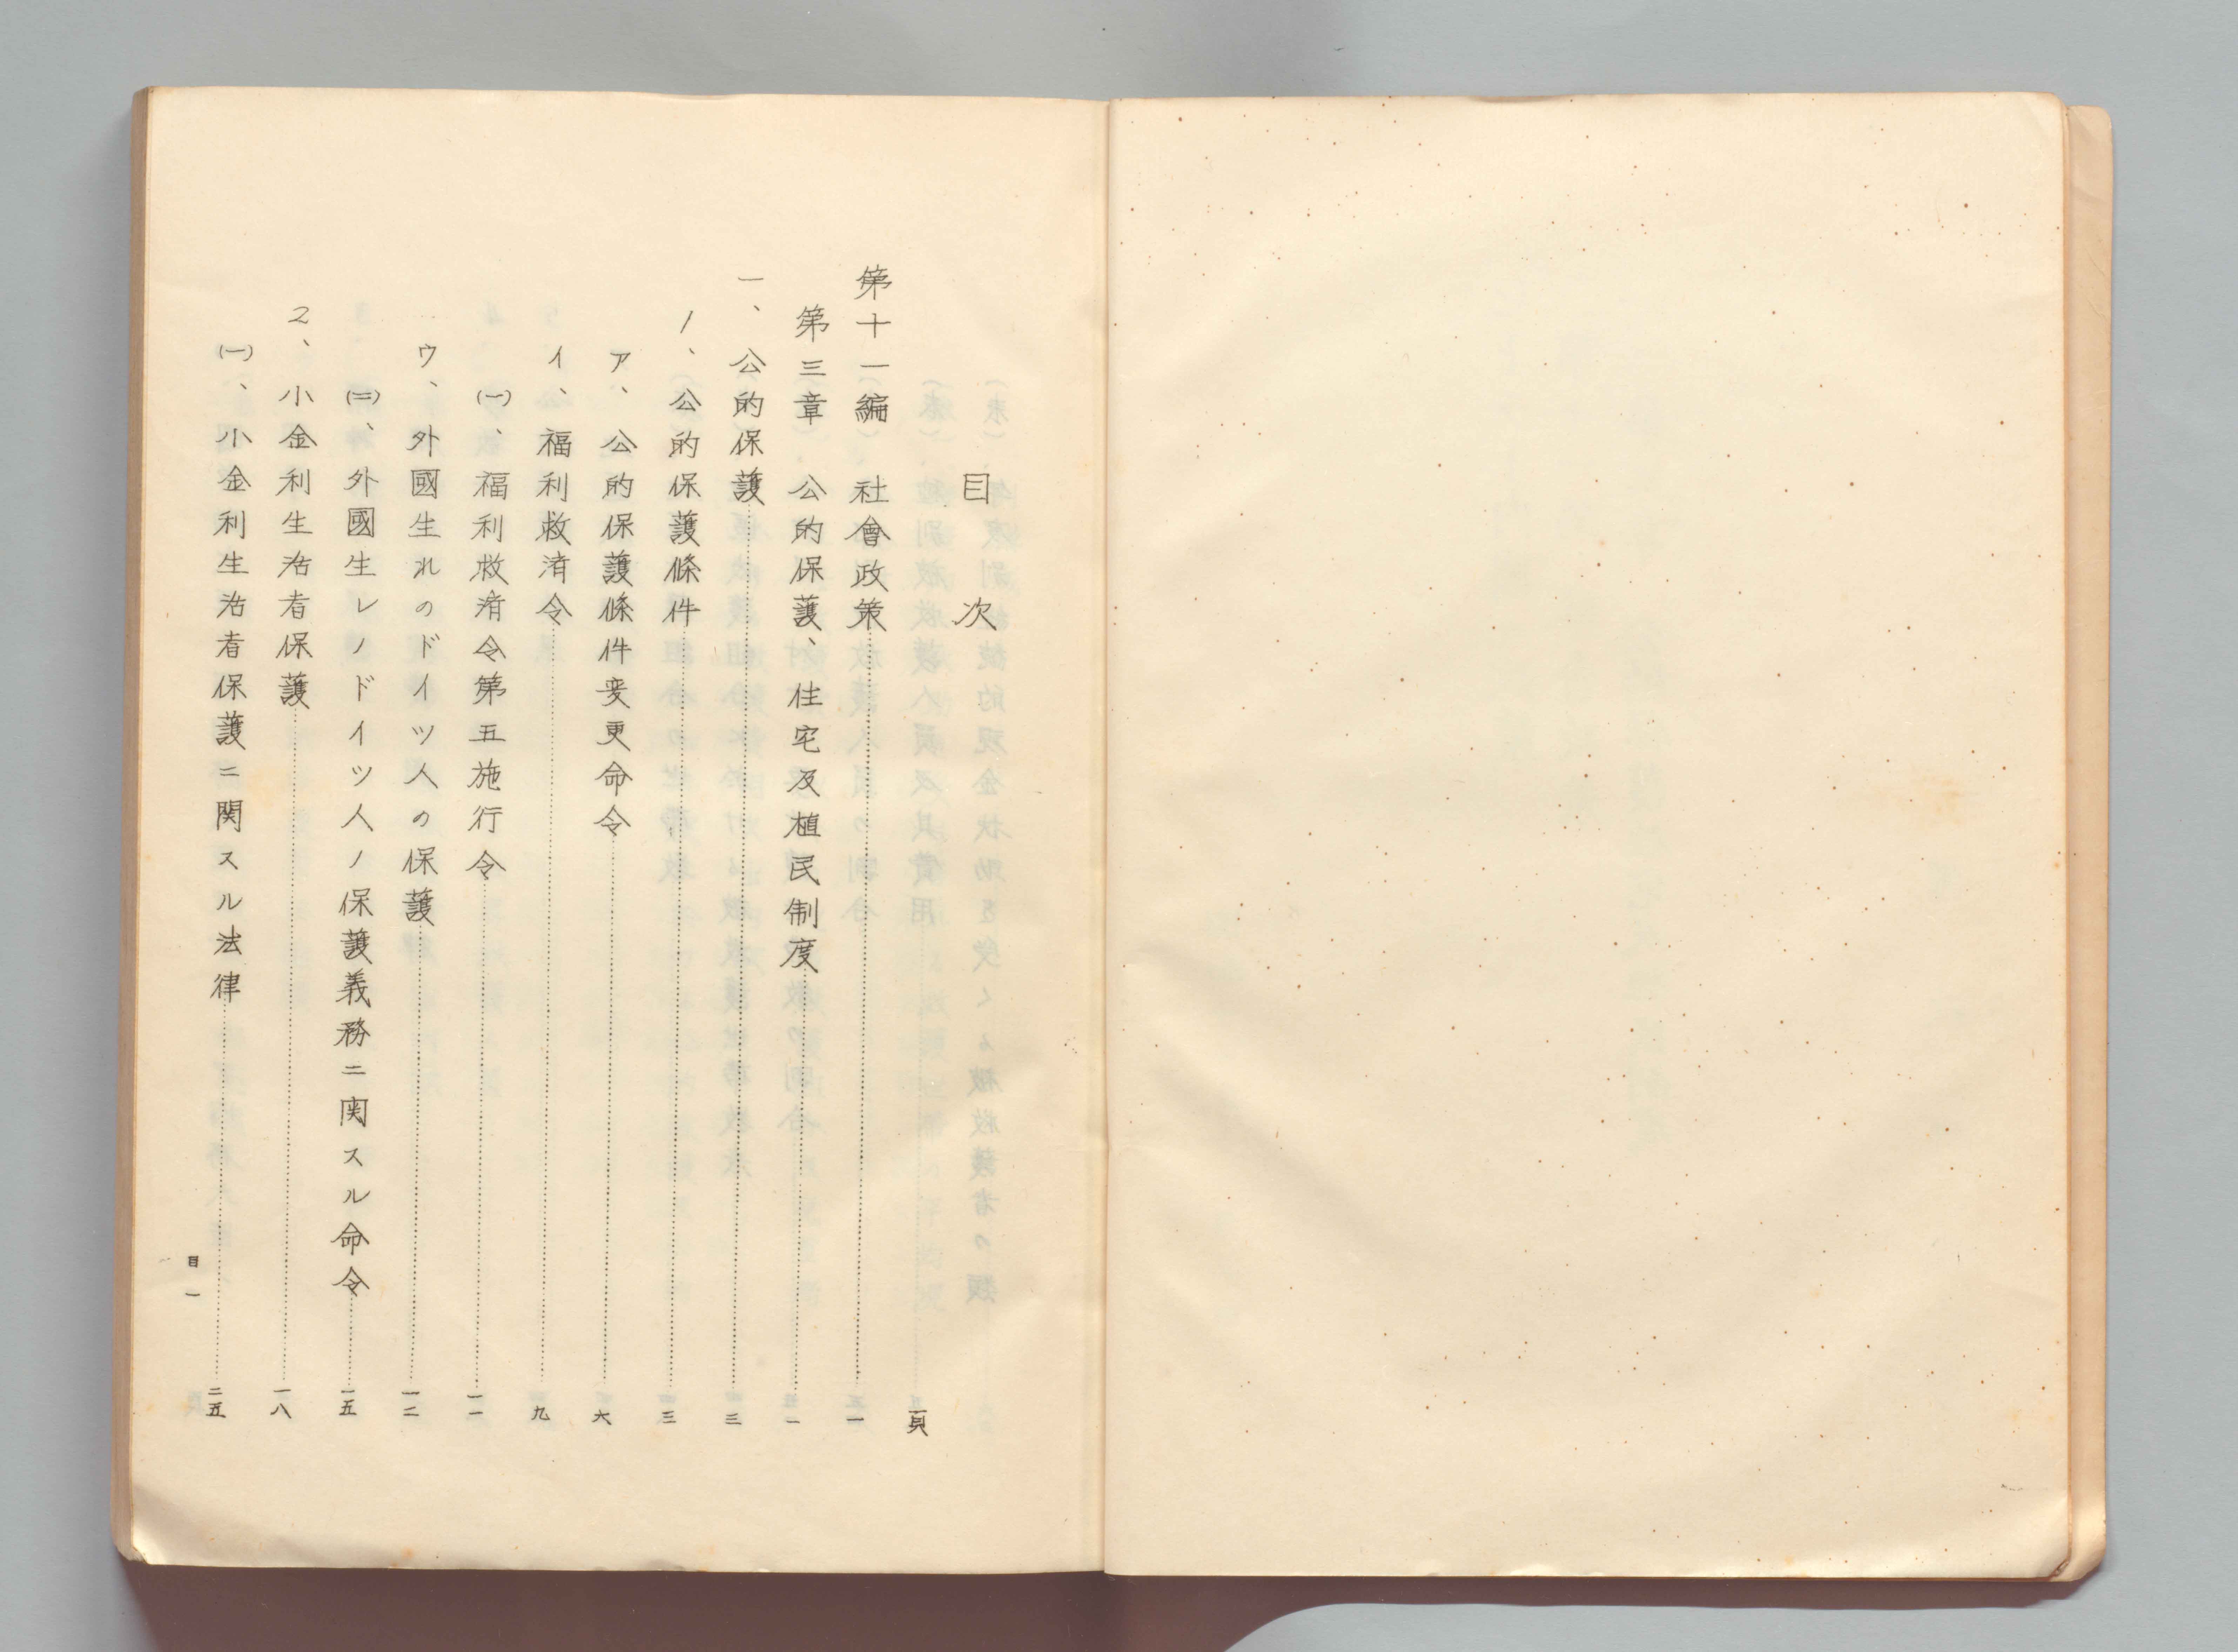 目次
頁
第十一編 社會政策……一
第三章 公的保護、住宅及植民制度……一
一、公的保護……三
1、公的保護條件……三
ア、公的保護條件変更命令……六
イ、福利救済令……九
㈠、福利救済令第五施行令……一一
ウ、外國生れのドイツ人の保護……一二
㈡、外國生レノドイツ人ノ保護義務ニ関スル命令……一五
2、小金利生活者保護……一八
㈠、小金利生活者保護ニ関スル法律……二五
目一